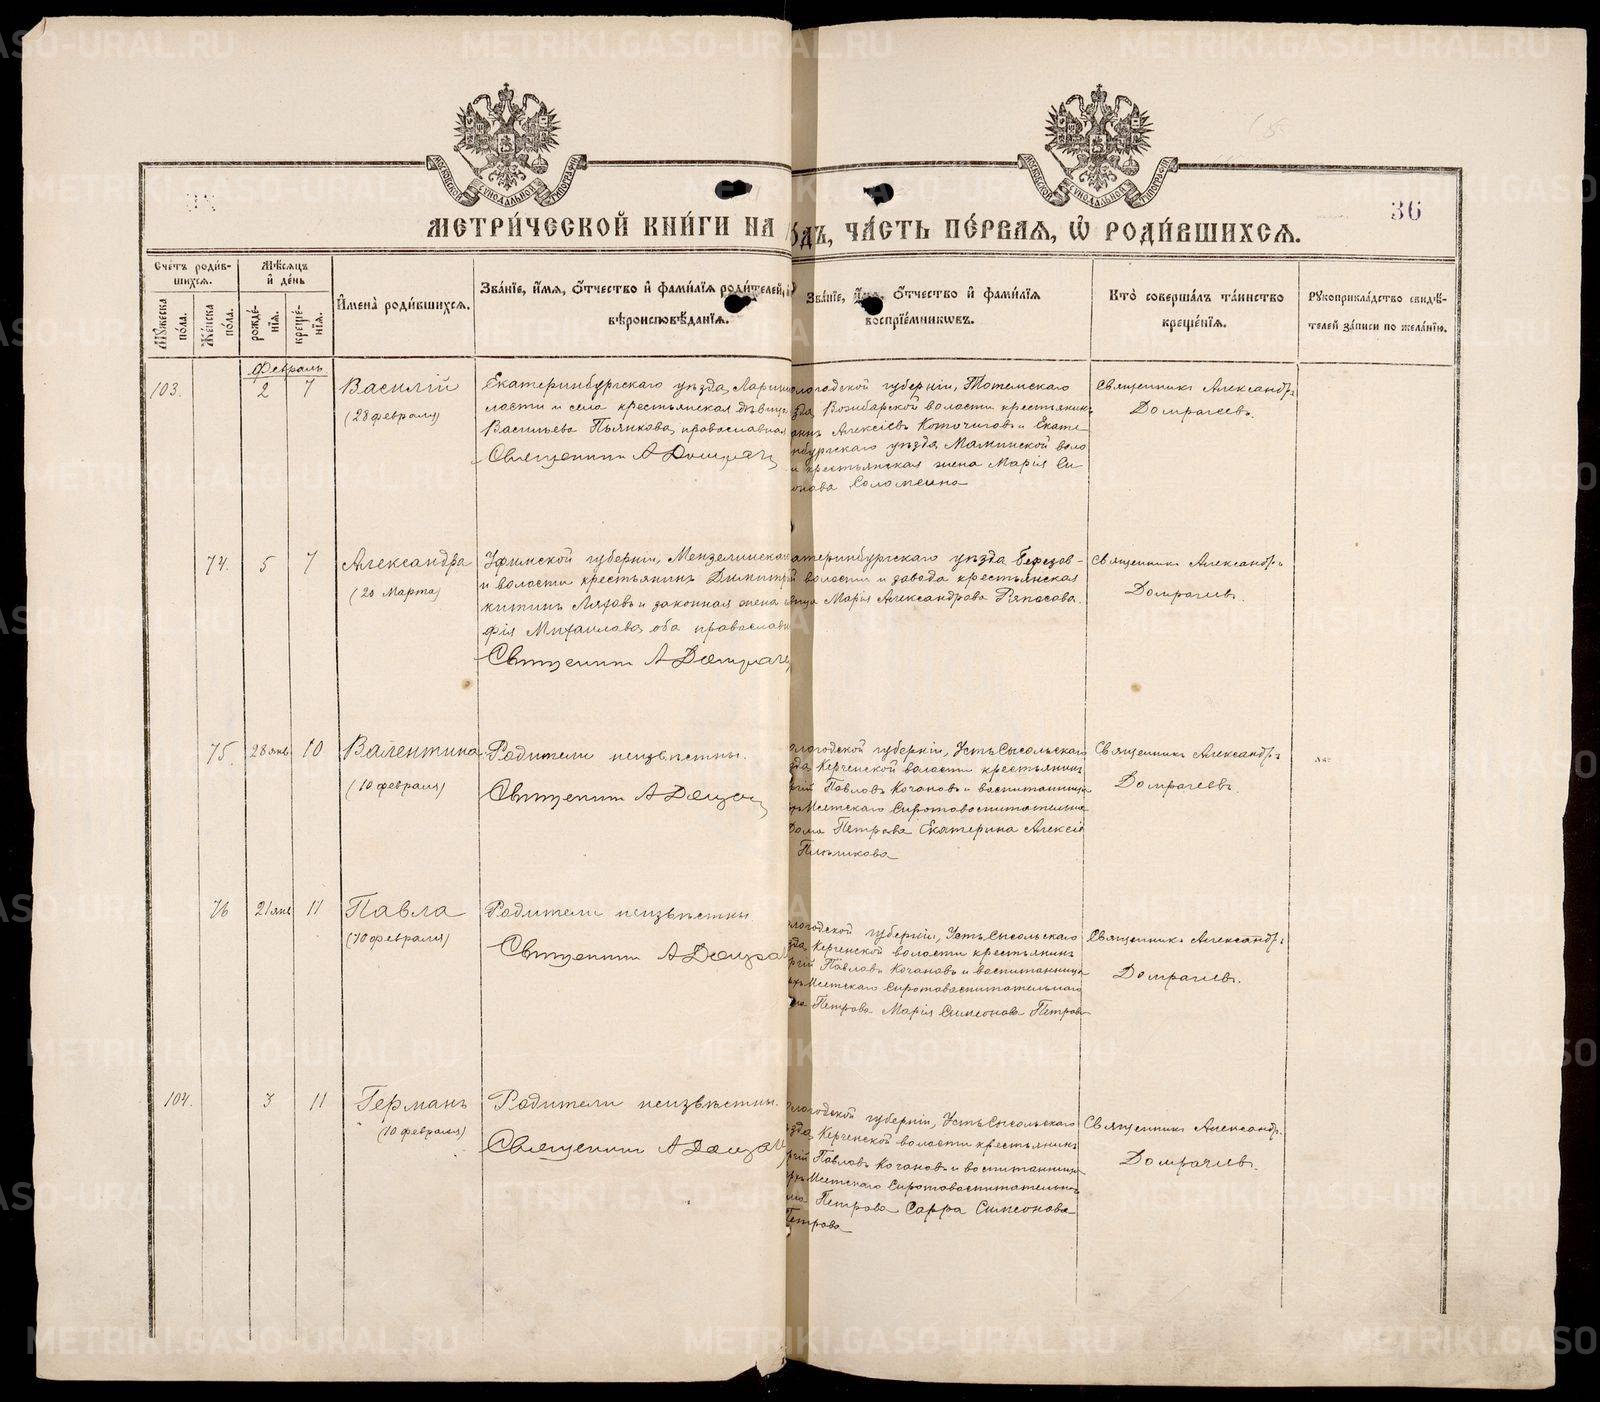 МЕТРИ́ЧЕСКОЙ КНИ́ГИ НА
ѠДЪ, ЧА́СТЬ ПЕ́РВАЯ, Ѡ РОДИ́ВШИХСЯ.
36
Сче́тъ роди́в-
шихся.
Мѣ́сяцъ
и де́нь
Мꙋ́жеска по́ла.
Же́нска по́ла.
рожде́-нія.
креще́-нія.
Имена̀ роди́вшихся.
Зва́нїе, и́мя, ѻ́тчество и фами́лїя роди́телей, и
вѣроисповѣ́данїя.
Зва́нїе, и́мя, ѻ́тчество и фами́лїя
воспрїе́мникѡвъ.
Кто̀ соверша́лъ та́инство
креще́нїя.
Рꙋкоприкла́дство свидѣ́-
телей за́писи по жела́нїю.
Февраль
103. 2 7 Василій
(28 февраля)
Екатеринбургскаго уѣзда,
ласти и села крестьянская дѣвица
Васильева Пьянкова, православная
Священникъ А Домрачев
ологодской губерніи, Тотемскаго
зда, Вожбарской волости крестьянинъ
Алексіевъ и Екате-
нбургскаго уѣзда, Маминской воло
и крестьянская жена Марія Си
онова Соломеина
Священникъ Александръ
Домрачевъ.
74. 5 7 Александра
(20 Марта)
Уфимской губерніи, Мензелинскаго
и волости крестьянинъ Димитрій
китинъ и законная жена
фія Михаилова, оба православн
Священникъ А Домрачев
атеринбургскаго уѣзда Березов-
й волости и завода крестьянская
вица Марія Александрова
Священникъ Александръ
Домрачевъ.
75. 28 янв 10 Валентина
(10 февраля)
Родители неизвѣстны.
Священникъ А Домрач
ологодской губерніи, Усть Сысольскаго
зда, Керченской волости крестьянинъ
ргій Павловъ Кочановъ и воспитанница
рхъ Исетскаго Сиротовоспитательна
Дома Петрова Екатерина Алексіе
Плюсникова
Священникъ Александръ
Домрачевъ.
76 21 янв 11 Павла
(10 февраля)
Родители неизвѣстны
Священникъ А Домрач
ологодской губерніи, Усть Сысольскаго
зда, Керченской волости крестьянинъ
ргій Павловъ Кочановъ и воспитанница
рхъ Исетскаго Сиротовоспитательнаго
ма Петрова Марія Симеонова Петрова
Священникъ Александръ
Домрачевъ.
104. 3 11 Германъ
(10 февраля)
Родители неизвѣстны.
Священникъ А Домрач
ологодской губерніи, Усть Сысольскаго
зда, Керченской волости крестьянинъ
ргій Павловъ Кочановъ и воспитанница
рхъ Исетскаго Сиротовоспитательнаг
ма Петрова Сарра Симеонова
Петрова
Священникъ Александр.
Домрачевъ.
METRIKI.GASO-URAL.RU